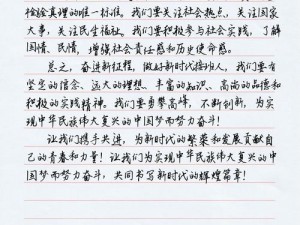 检验真理的唯一标准。我们要关注社会热点，关注国家
大事，关注民生福祉。我们要积极参与社会实践，了解
国情、民情，增强社会责任感和历史使命感。
总之，奋进新征程，做好新时代接班人，我们要有
坚定的信念、远大的理想、丰富的知识、高尚的品德和
积极的实践精神。我们要勇攀高峰，不断创新，为实现
中华民族伟大复兴的中国梦而努力奋斗！
让我们携手共进，为新时代的繁荣和发展贡献自
己的青春和力量！让我们为实现中华民族伟大复兴的中
国梦而努力奋斗，共同书写新时代的辉煌篇章！